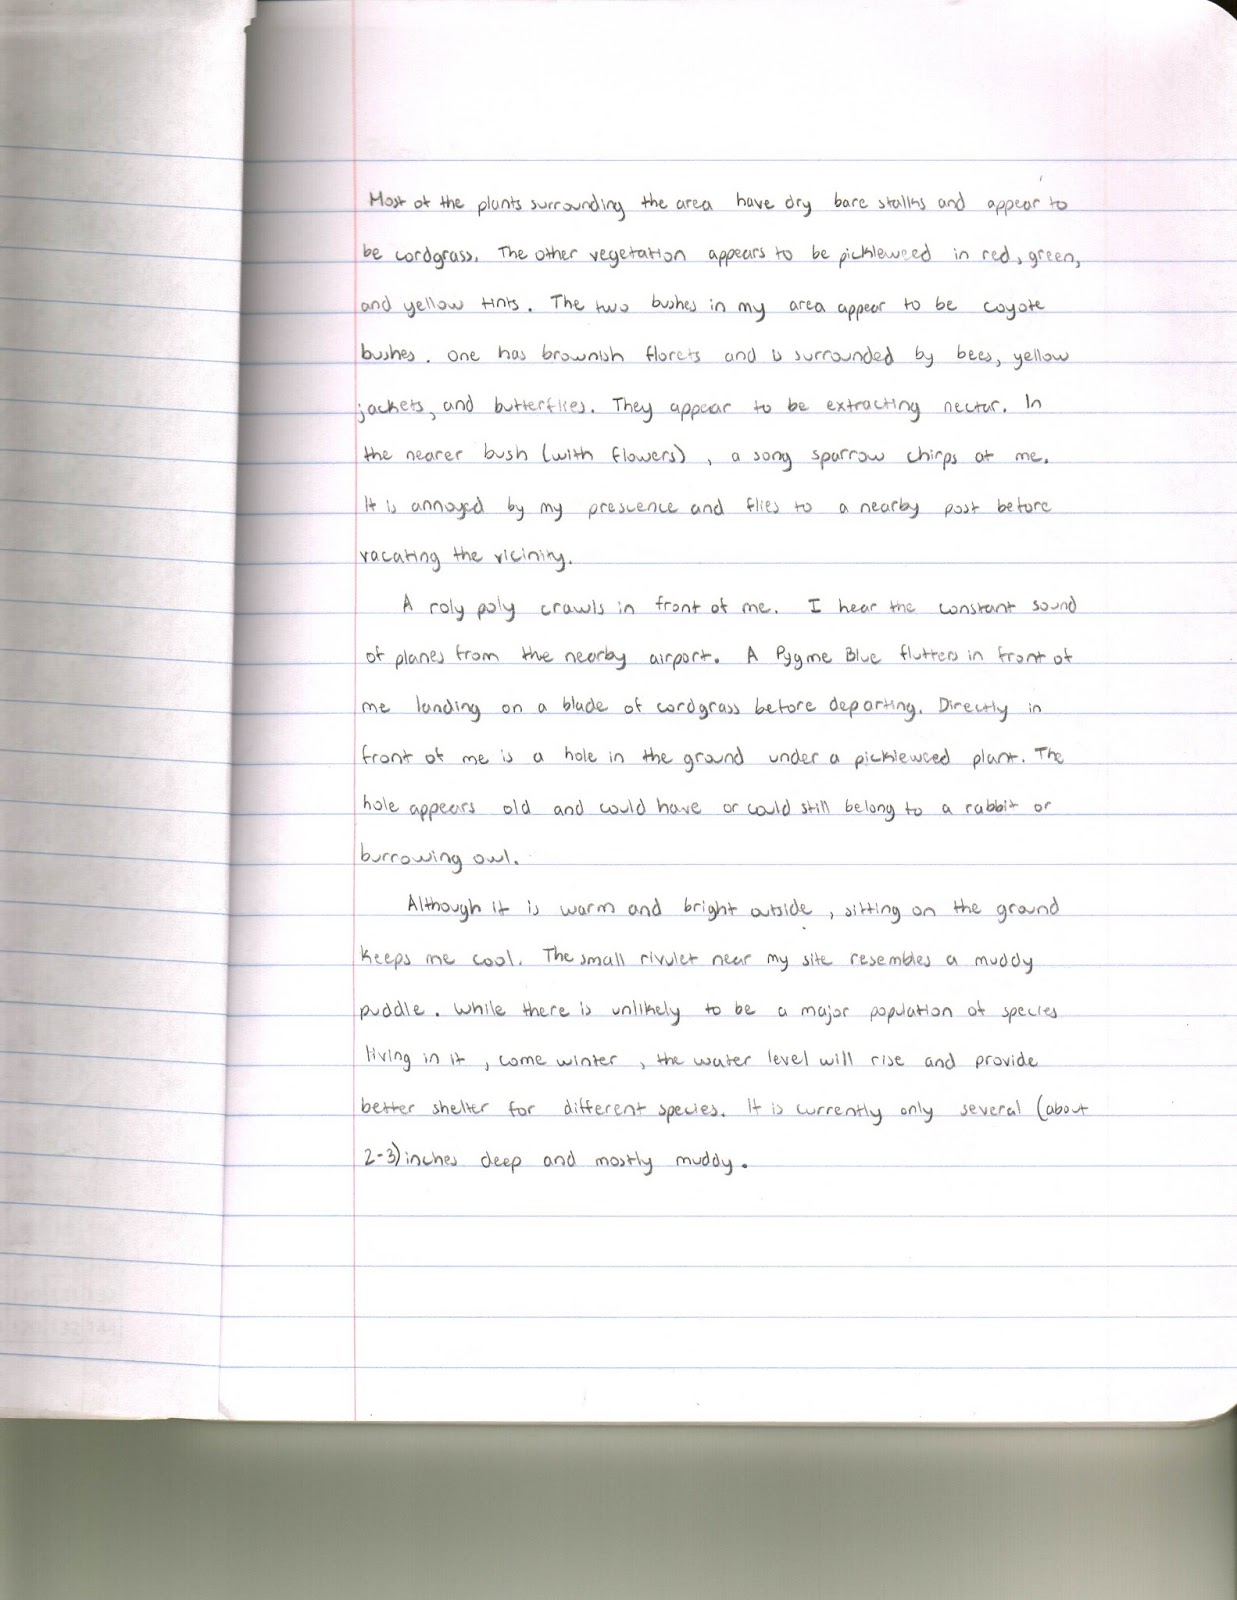 Most of the plants surrounding the area have dry bare stalks and appear to
be cordgrass. The other vegetation appears to be pickleweed in red, green,
and yellow tints. The two bushes in my area appear to be coyote
bushes. One has brownish florets and is surrounded by bees, yellow
jackets, and butterflies. They appear to be extracting nectar. In
the nearer bush (with flowers), a song sparrow chirps at me.
It is annoyed by my prescence and flies to a nearby post before
vacating the vicinity.
A roly poly crawls in front of me. I hear the constant sound
of planes from the nearby airport. A Pygme Blue flutters in front of
me landing on a blade of cordgrass before departing. Directly in
front of me is a hole in the ground under a pickleweed plant. The
hole appears old and could have or could still belong to a rabbit or
burrowing owl.
Although it is warm and bright outside, sitting on the ground
keeps me cool. The small rivulet near my site resembles a muddy
puddle. While there is unlikely to be a major population of species
living in it, come winter, the water level will rise and provide
better shelter for different species. It is currently only several (about
2-3) inches deep and mostly muddy.